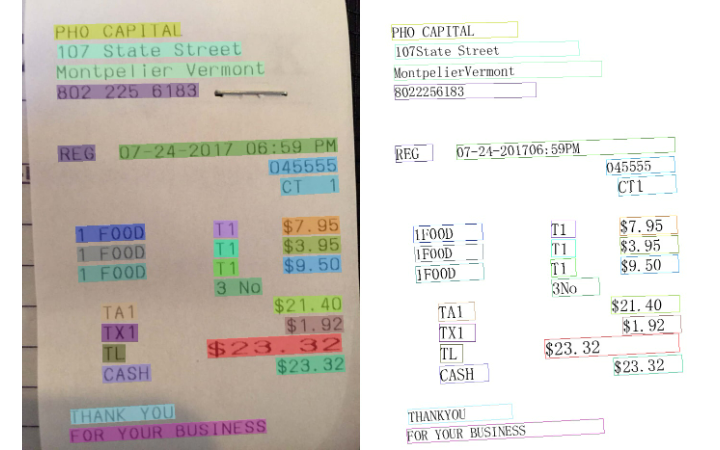 PHO CAPITAL
107 State Street
Montpelier Vermont
802 225 6183
REG 07-24-2017 06:59 PM
045555
CT 1
1 FOOD T1 $7.95
1 FOOD T1 $3.95
1 FOOD T1 $9.50
3 No
TA1 $21.40
TX1 $1.92
TL $23.32
CASH $23.32
THANK YOU
FOR YOUR BUSINESS
PHO CAPITAL
107State Street
MontpelierVermont
8022256183
REG 07-24-201706:59PM
045555
CT1
1FOOD T1 $7.95
1FOOD T1 $3.95
1FOOD T1 $9.50
3No
TA1 $21.40
TX1 $1.92
TL $23.32
CASH $23.32
THANKYOU
FOR YOUR BUSINESS